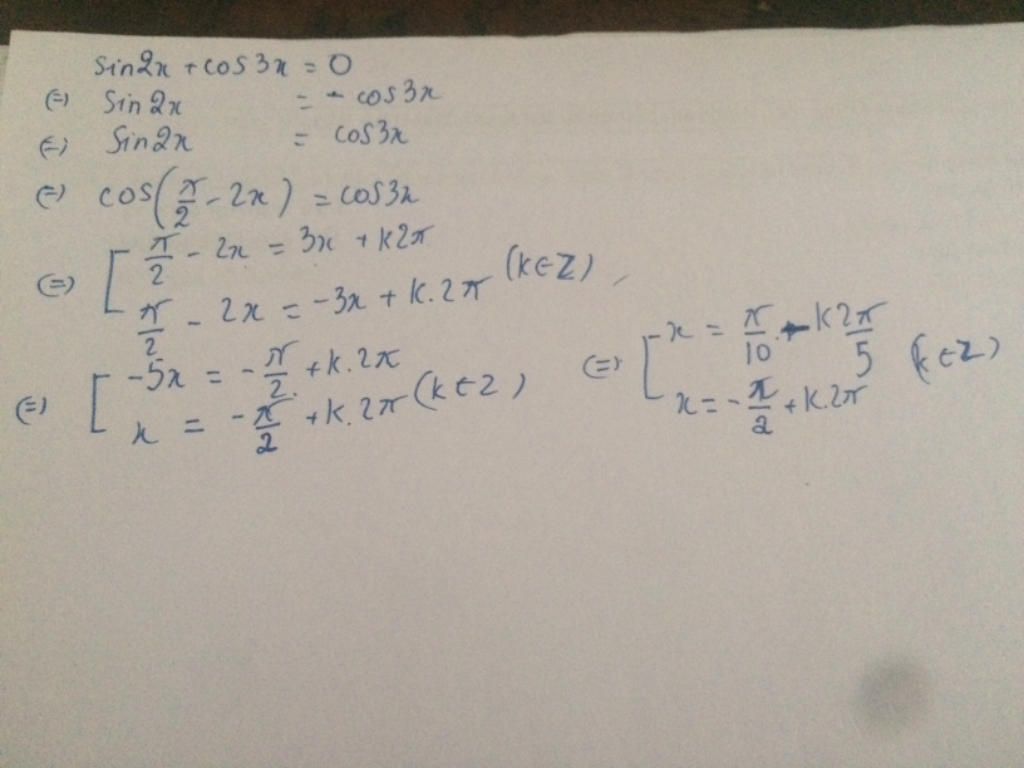 sin2x + cos3x = 0
(=) Sin2x = - cos3x
(=) Sin2x = cos3x
(=) cos(π/2 - 2x) = cos3x
(=) [ π/2 - 2x = 3x + k2π
π/2 - 2x = -3x + k.2π (k∈Z)
(=) [ -5x = -π/2 + k.2π
x = -π/2 + k.2π (k∈Z)
(=) [ x = π/10 - k2π/5
x = -π/2 + k.2π (k∈Z)